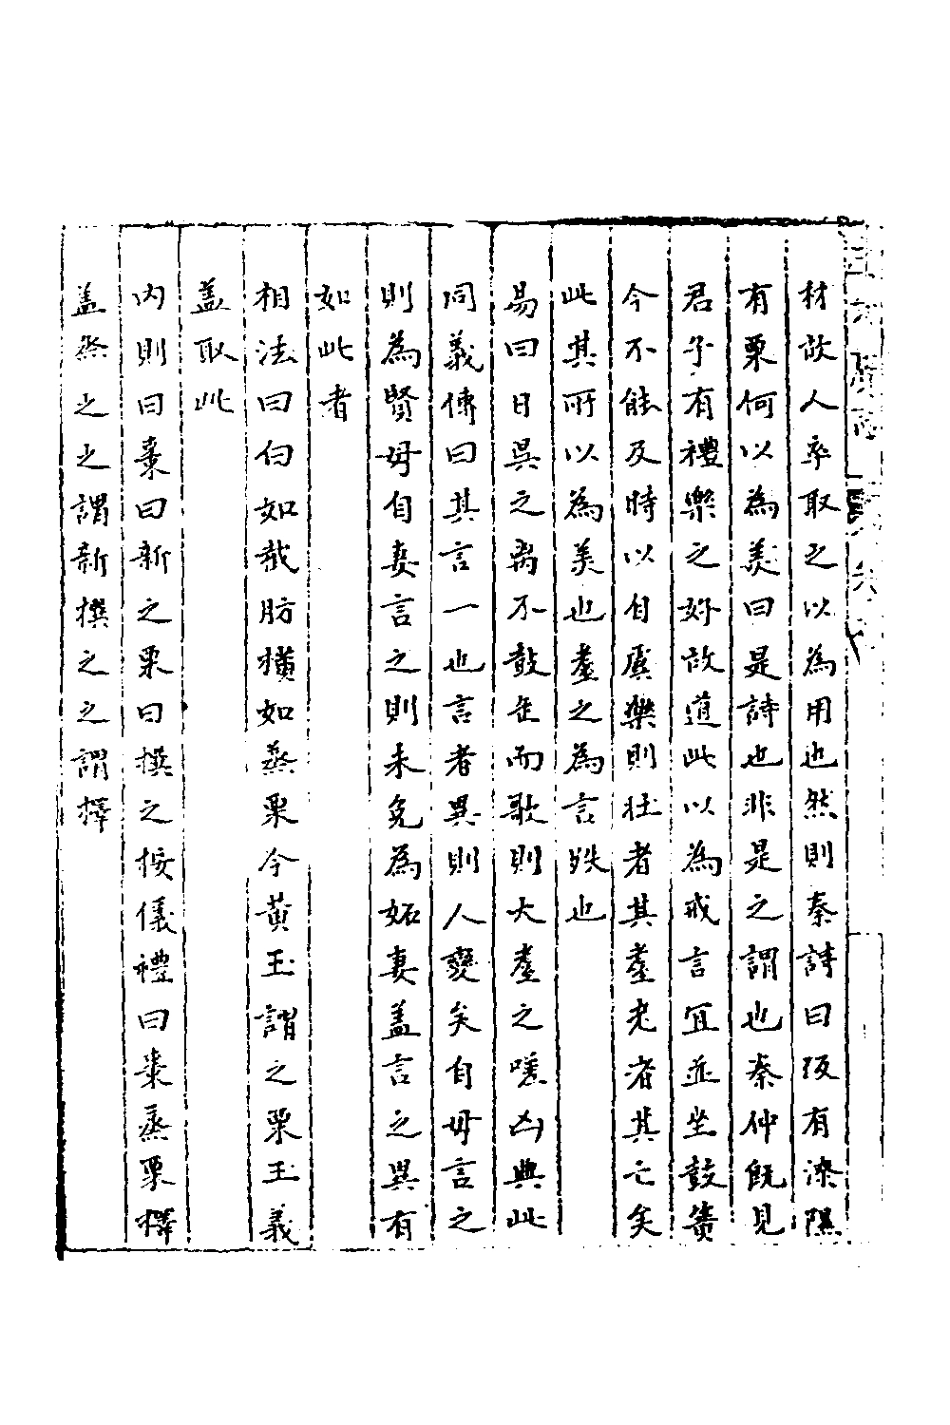 材故人卒取之以為用也然則秦詩曰阪有漆隰
有栗何以為美曰是詩也非是之謂也秦仲旣見
君子有禮樂之好故道此以為戒言宜並坐鼓簧
今不能及時以自虞樂則壮者其耋老者其亡矣
此其所以為美也耋之為言跌也
易曰日昃之离不鼓缶而歌則大耋之嗟凶與此
同義傳曰其言一也言者異則人變矣自母言之
則為賢母自妻言之則未免為妬妻盖言之異有
如此者
相法曰白如截肪横如蒸栗今黄玉謂之栗玉義
盖取此
内則曰棗曰新之栗曰撰之按儀禮曰棗蒸栗擇
盖烝之之謂新撰之之謂擇